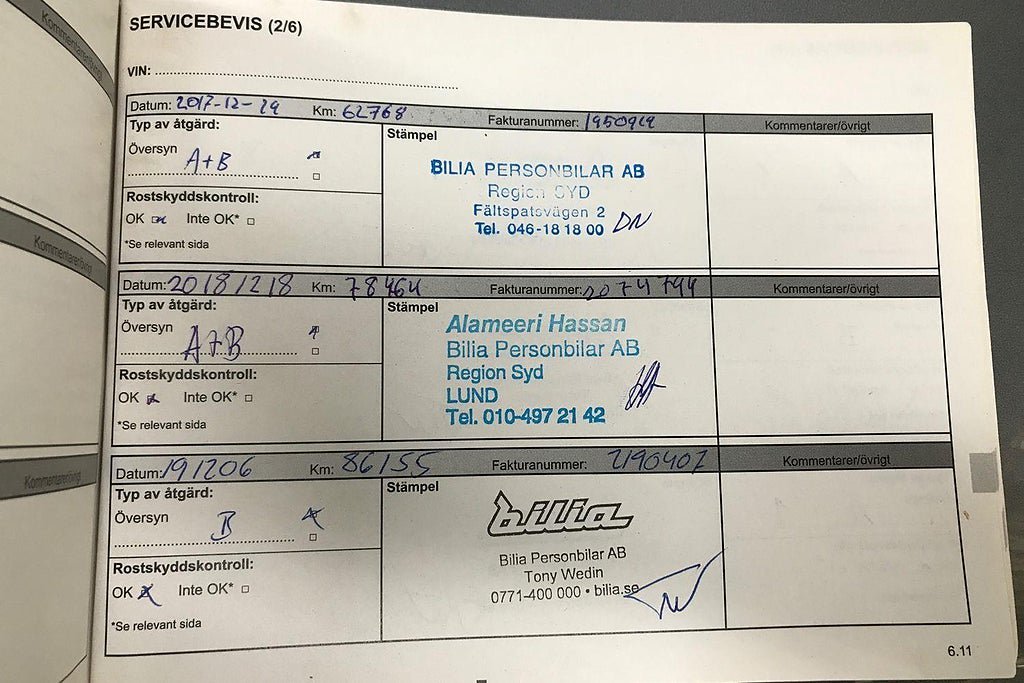 Kommentarer/övrigt
Kommentarer/övrigt
Kommentarer/övrigt
SERVICEBEVIS (2/6)
VIN:
Datum: 2017-12-19 Km: 62768 Fakturanummer: Kommentarer/övrigt
Typ av åtgärd: Stämpel
Översyn A+B
BILIA PERSONBILAR AB
Region SYD
Fältspatsvägen 2
Tel. 046-18 18 00 DN
Rostskyddskontroll:
OK Inte OK*
*Se relevant sida
Datum: 20181218 Km: 78464 Fakturanummer: 2074744 Kommentarer/övrigt
Typ av åtgärd: Stämpel
Översyn A+B
Alameeri Hassan
Bilia Personbilar AB
Region Syd
LUND
Tel. 010-497 21 42
Rostskyddskontroll:
OK Inte OK*
*Se relevant sida
Datum: 191206 Km: 86155 Fakturanummer: 2190407 Kommentarer/övrigt
Typ av åtgärd: Stämpel
Översyn B
bilia
Bilia Personbilar AB
Tony Wedin
0771-400 000 • bilia.se
Rostskyddskontroll:
OK Inte OK*
*Se relevant sida
6.11